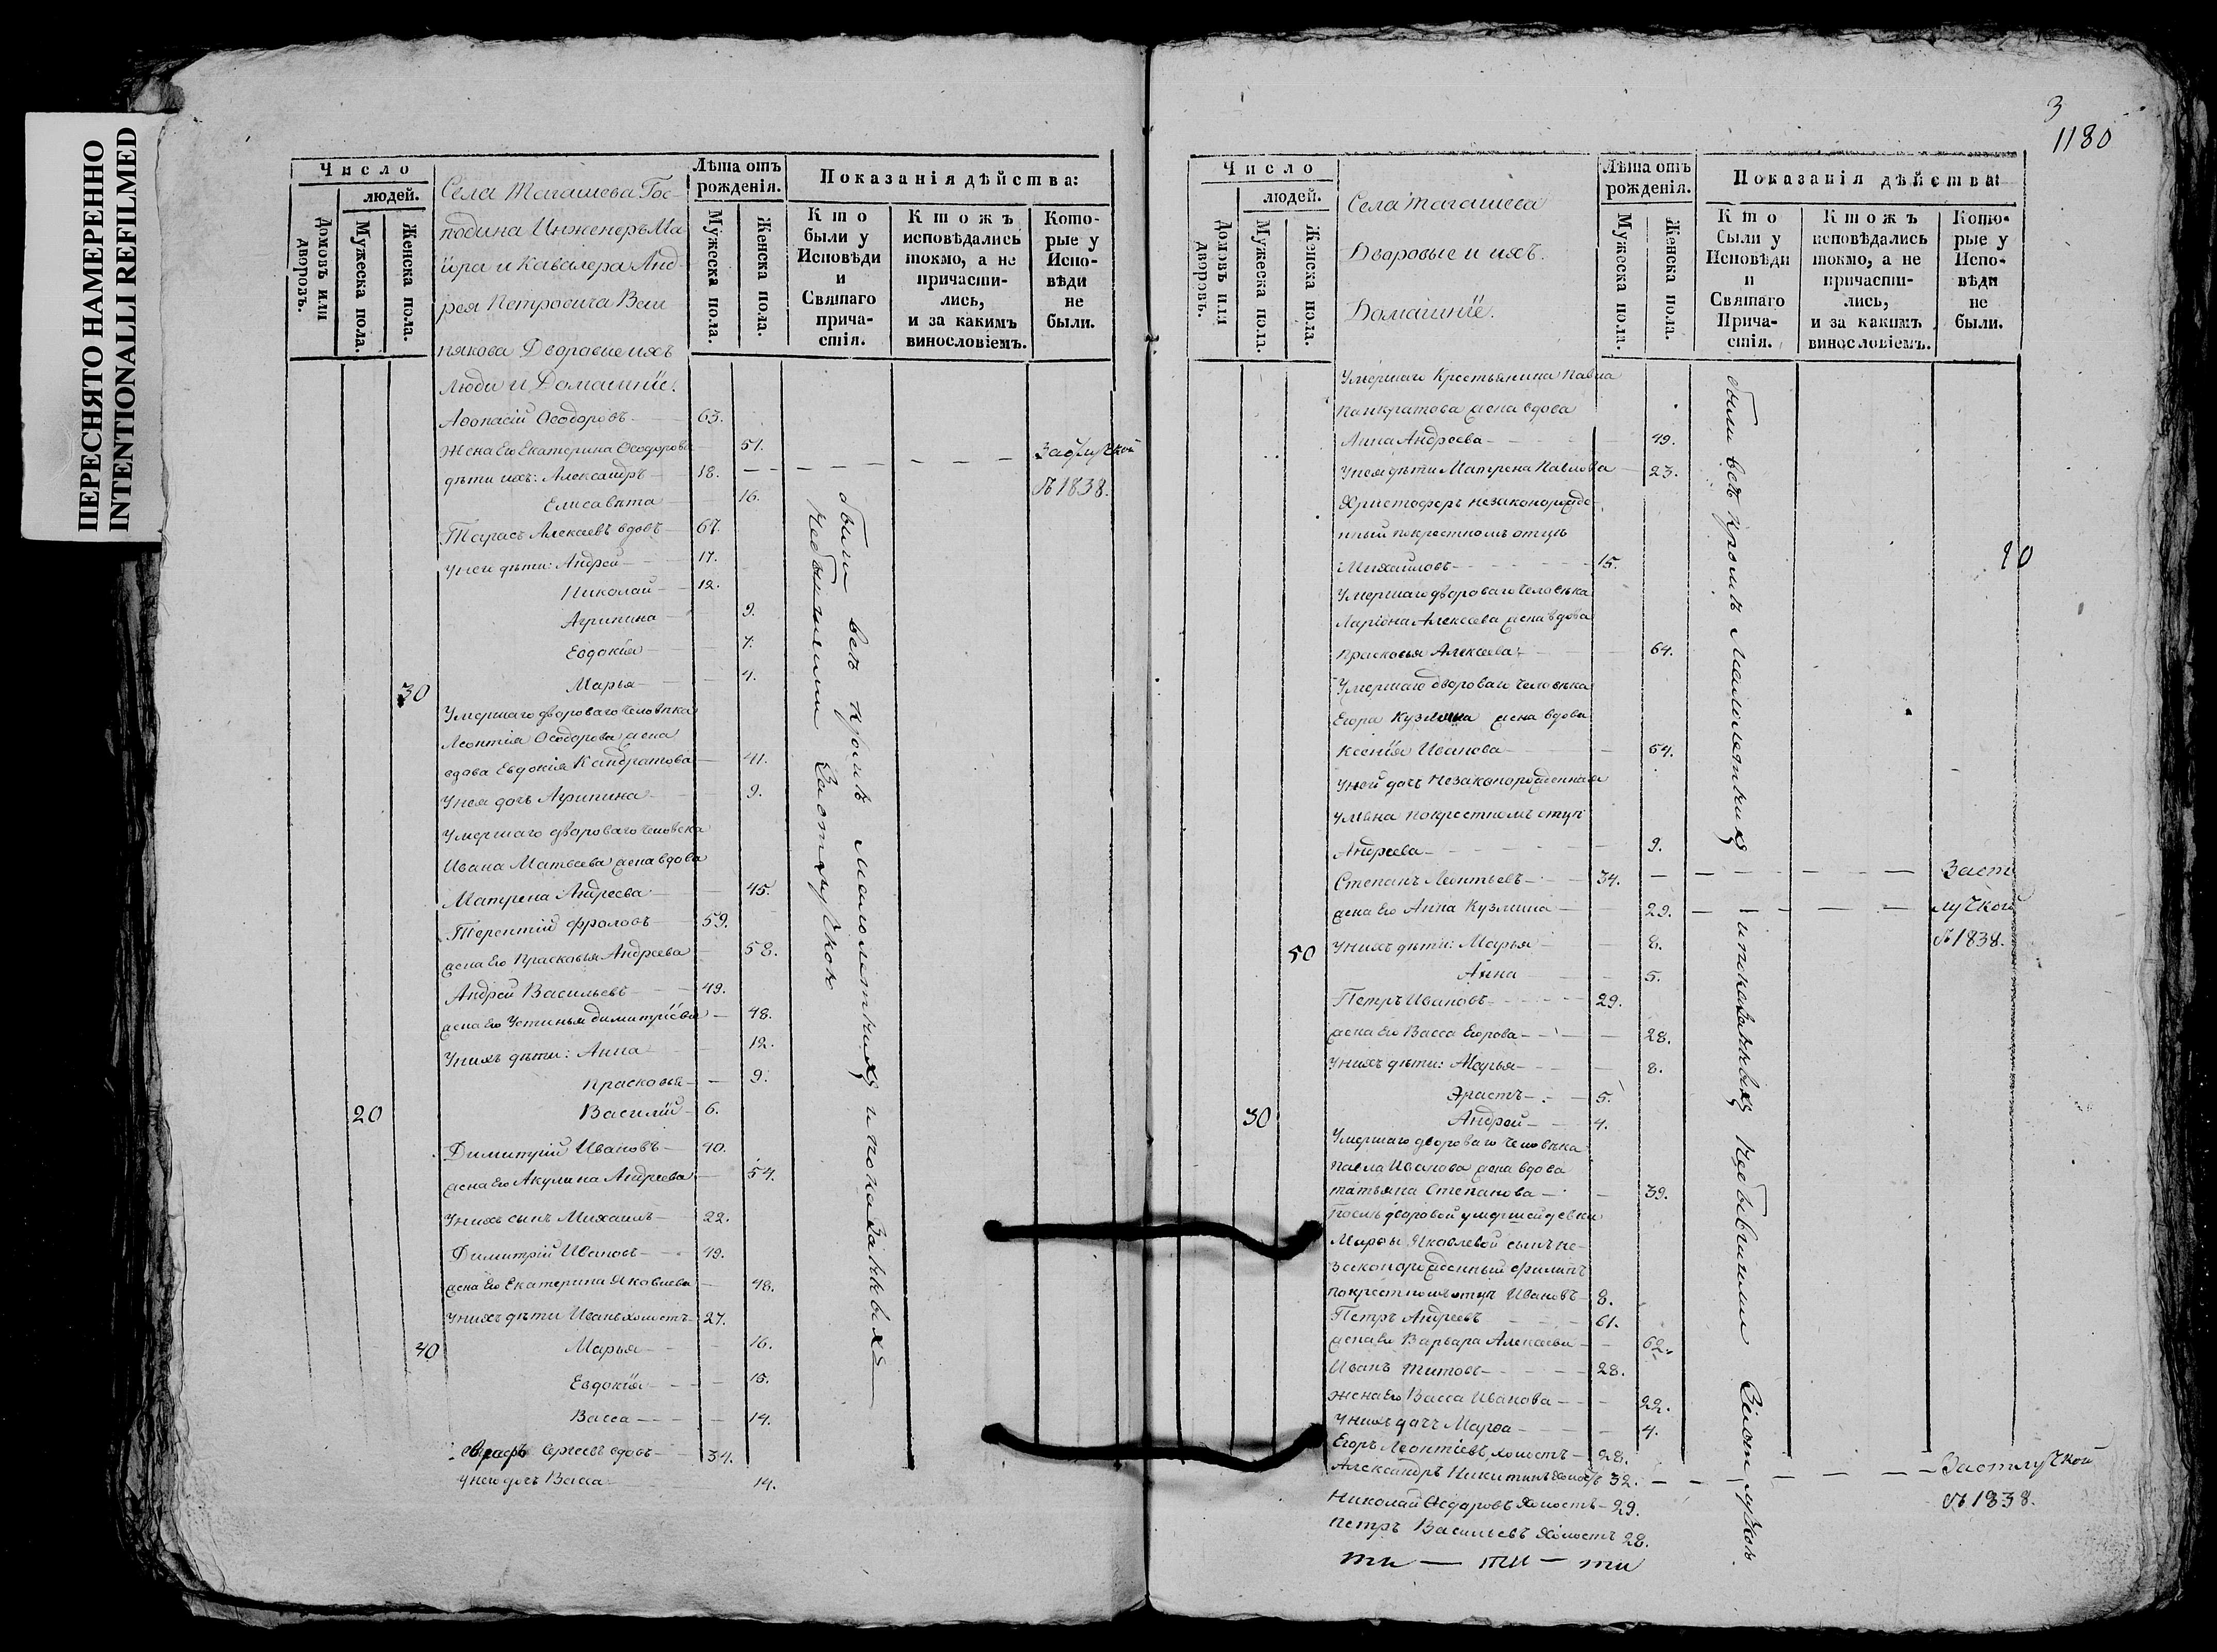 ПЕРЕСНЯТО НАМЕРЕННО
INTENTIONALLI REFILMED
Число
людей.
Домовъ или дворовъ.
Мужеска пола.
Женска пола.
Села Тагашева Гос-
подина Инженеръ Ма
іора и Кавалера Анд-
рея Петровича Веш
някова Дворовые ихъ
люди и Домашніе.
Лѣта отъ рожденія.
Мужеска пола.
Женска пола.
Показанія дѣйства:
Кто были у Исповѣди и Святаго причастія.
Ктожъ исповѣдались токмо, а не причастились, и за какимъ винословіемъ.
Которые у Исповѣди не были.
Аѳонасій Ѳеодоровъ 63.
Жена Его Екатерина Ѳеодорова 51.
дѣти ихъ: Александръ 18. За отлучкой
Елисавѣта 16. съ 1838.
Тарасъ Алексѣевъ вдовъ 67.
У него дѣти: Андрей 17.
Николай 12.
Агрипина 9.
Евдокія 7.
30 Марья 4.
Умершаго двороваго человѣка
Леонтія Ѳеодорова жена
вдова Евдокія Кандратова 41.
У нея дочь Агрипина 9.
Умершаго двороваго человѣка
Ивана Матвеева жена вдова
Матрена Андреева 45.
Терентій Фроловъ 59.
жена Его Прасковья Андреева 58.
Андрей Васильевъ 49.
жена Его Устинья Димитріева 48.
У нихъ дѣти: Анна 12.
Прасковья 9.
20 Василій 6.
Димитрій Ивановъ 40.
жена Его Акулина Андреева 54.
У нихъ сынъ Михаилъ 22.
Димитрій Ивановъ 49.
жена Его Екатерина Яковлева 48.
У нихъ дѣти Иванъ холостъ 27.
40 Марья 16.
Евдокія 15.
Васса 14.
Сергеевъ вдовъ 34.
У него дочь Васса 14.
были всѣ кромѣ малолетнихъ и показанныхъ
небывшими за отлучкою
3
1180
Число
людей.
Домовъ или дворовъ.
Мужеска пола.
Женска пола.
Села Тагашева
Дворовые и ихъ.
Домашніе.
Лѣта отъ рожденія.
Мужеска пола.
Женска пола.
Показанія дѣйства:
Кто были у Исповѣди и Святаго Причастія.
Ктожъ исповѣдались токмо, а не причастились, и за какимъ винословіемъ.
Которые у Исповѣди не были.
Умершаго Крестьянина Павла
Панкратова жена вдова
Анна Андреева 49.
У нея дѣти Матрена Павлова 23.
Христофоръ незаконорожде-
нный по крестномъ отцѣ
Михайловъ 15.
Умершаго двороваго человѣка
Ларіона Алексеева жена вдова
Прасковья Алексеева 64.
Умершаго двороваго человѣка
Егора Кузмина жена вдова
Ксенія Иванова 54.
У ней дочь незаконорожденная
Ульяна по крестномъ отцѣ
Андреева 9.
Степанъ Леонтьевъ 34. За от
жена Его Анна Кузмина 29. лучкой
50 У нихъ дѣти: Марья 8. съ 1838.
Анна 5.
Петръ Ивановъ 29.
жена Его Васса Егорова 28.
У нихъ дѣти: Марья 8.
Эрастъ 5.
30 Андрей 4.
Умершаго двороваго человѣка
Павла Иванова жена вдова
Татьяна Степанова 39.
После дворовой умершей девки
Марѳы Яковлевой сынъ не-
законорожденный Филипъ
по крестномъ отцѣ Ивановъ 8.
Петръ Андреевъ 61.
жена Его Варвара Алексеева 62.
Иванъ Титовъ 28.
Жена Его Васса Иванова 22.
У нихъ дочь Марѳа 4.
Егоръ Леонтіевъ холостъ 28.
Александръ Никитинъ холостъ 32. За отлучкой
Николай Ѳедоровъ холостъ 29. съ 1838.
Петръ Васильевъ холостъ 28.
ти — ти — ти
были всѣ кромѣ малолетнихъ и показанныхъ небывшими за отлучкою